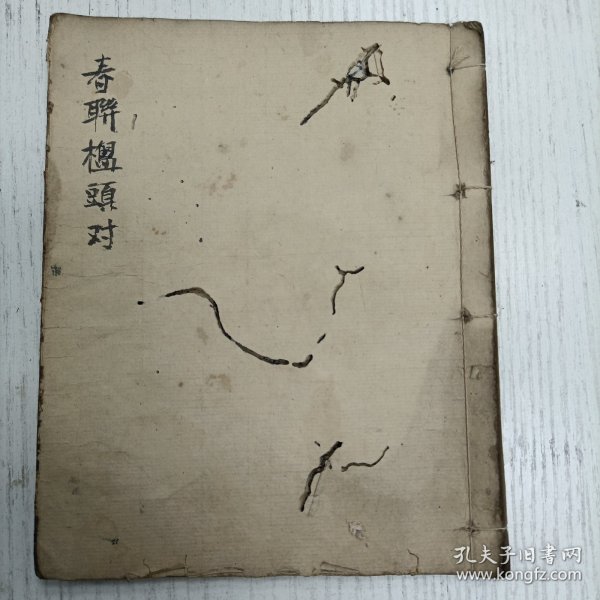 春聯楹頭对
孔夫子旧书网
www.kongfz.com